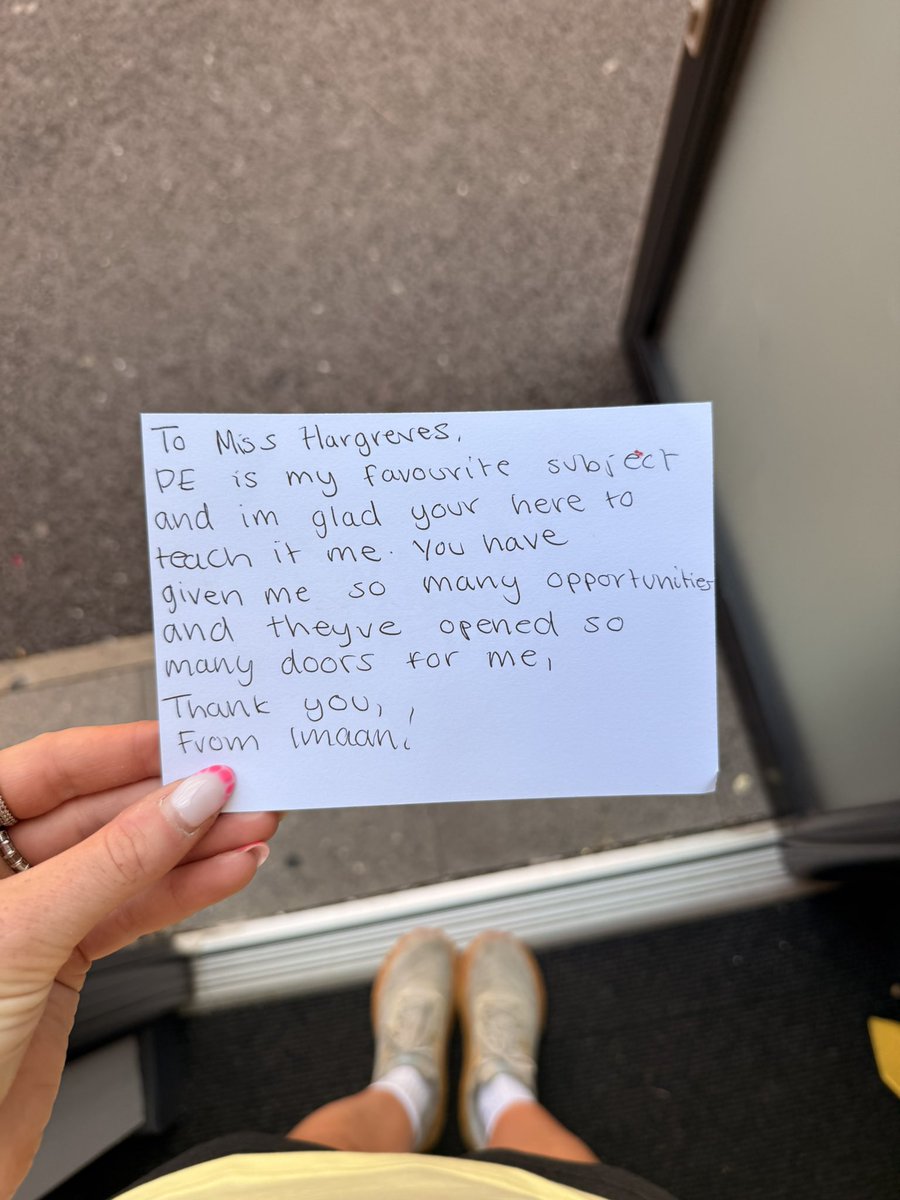 To Miss Hargreves,
PE is my favourite subject
and im glad your here to
teach it me. You have
given me so many opportunities
and theyve opened so
many doors for me,
Thank you,
From Imaan.